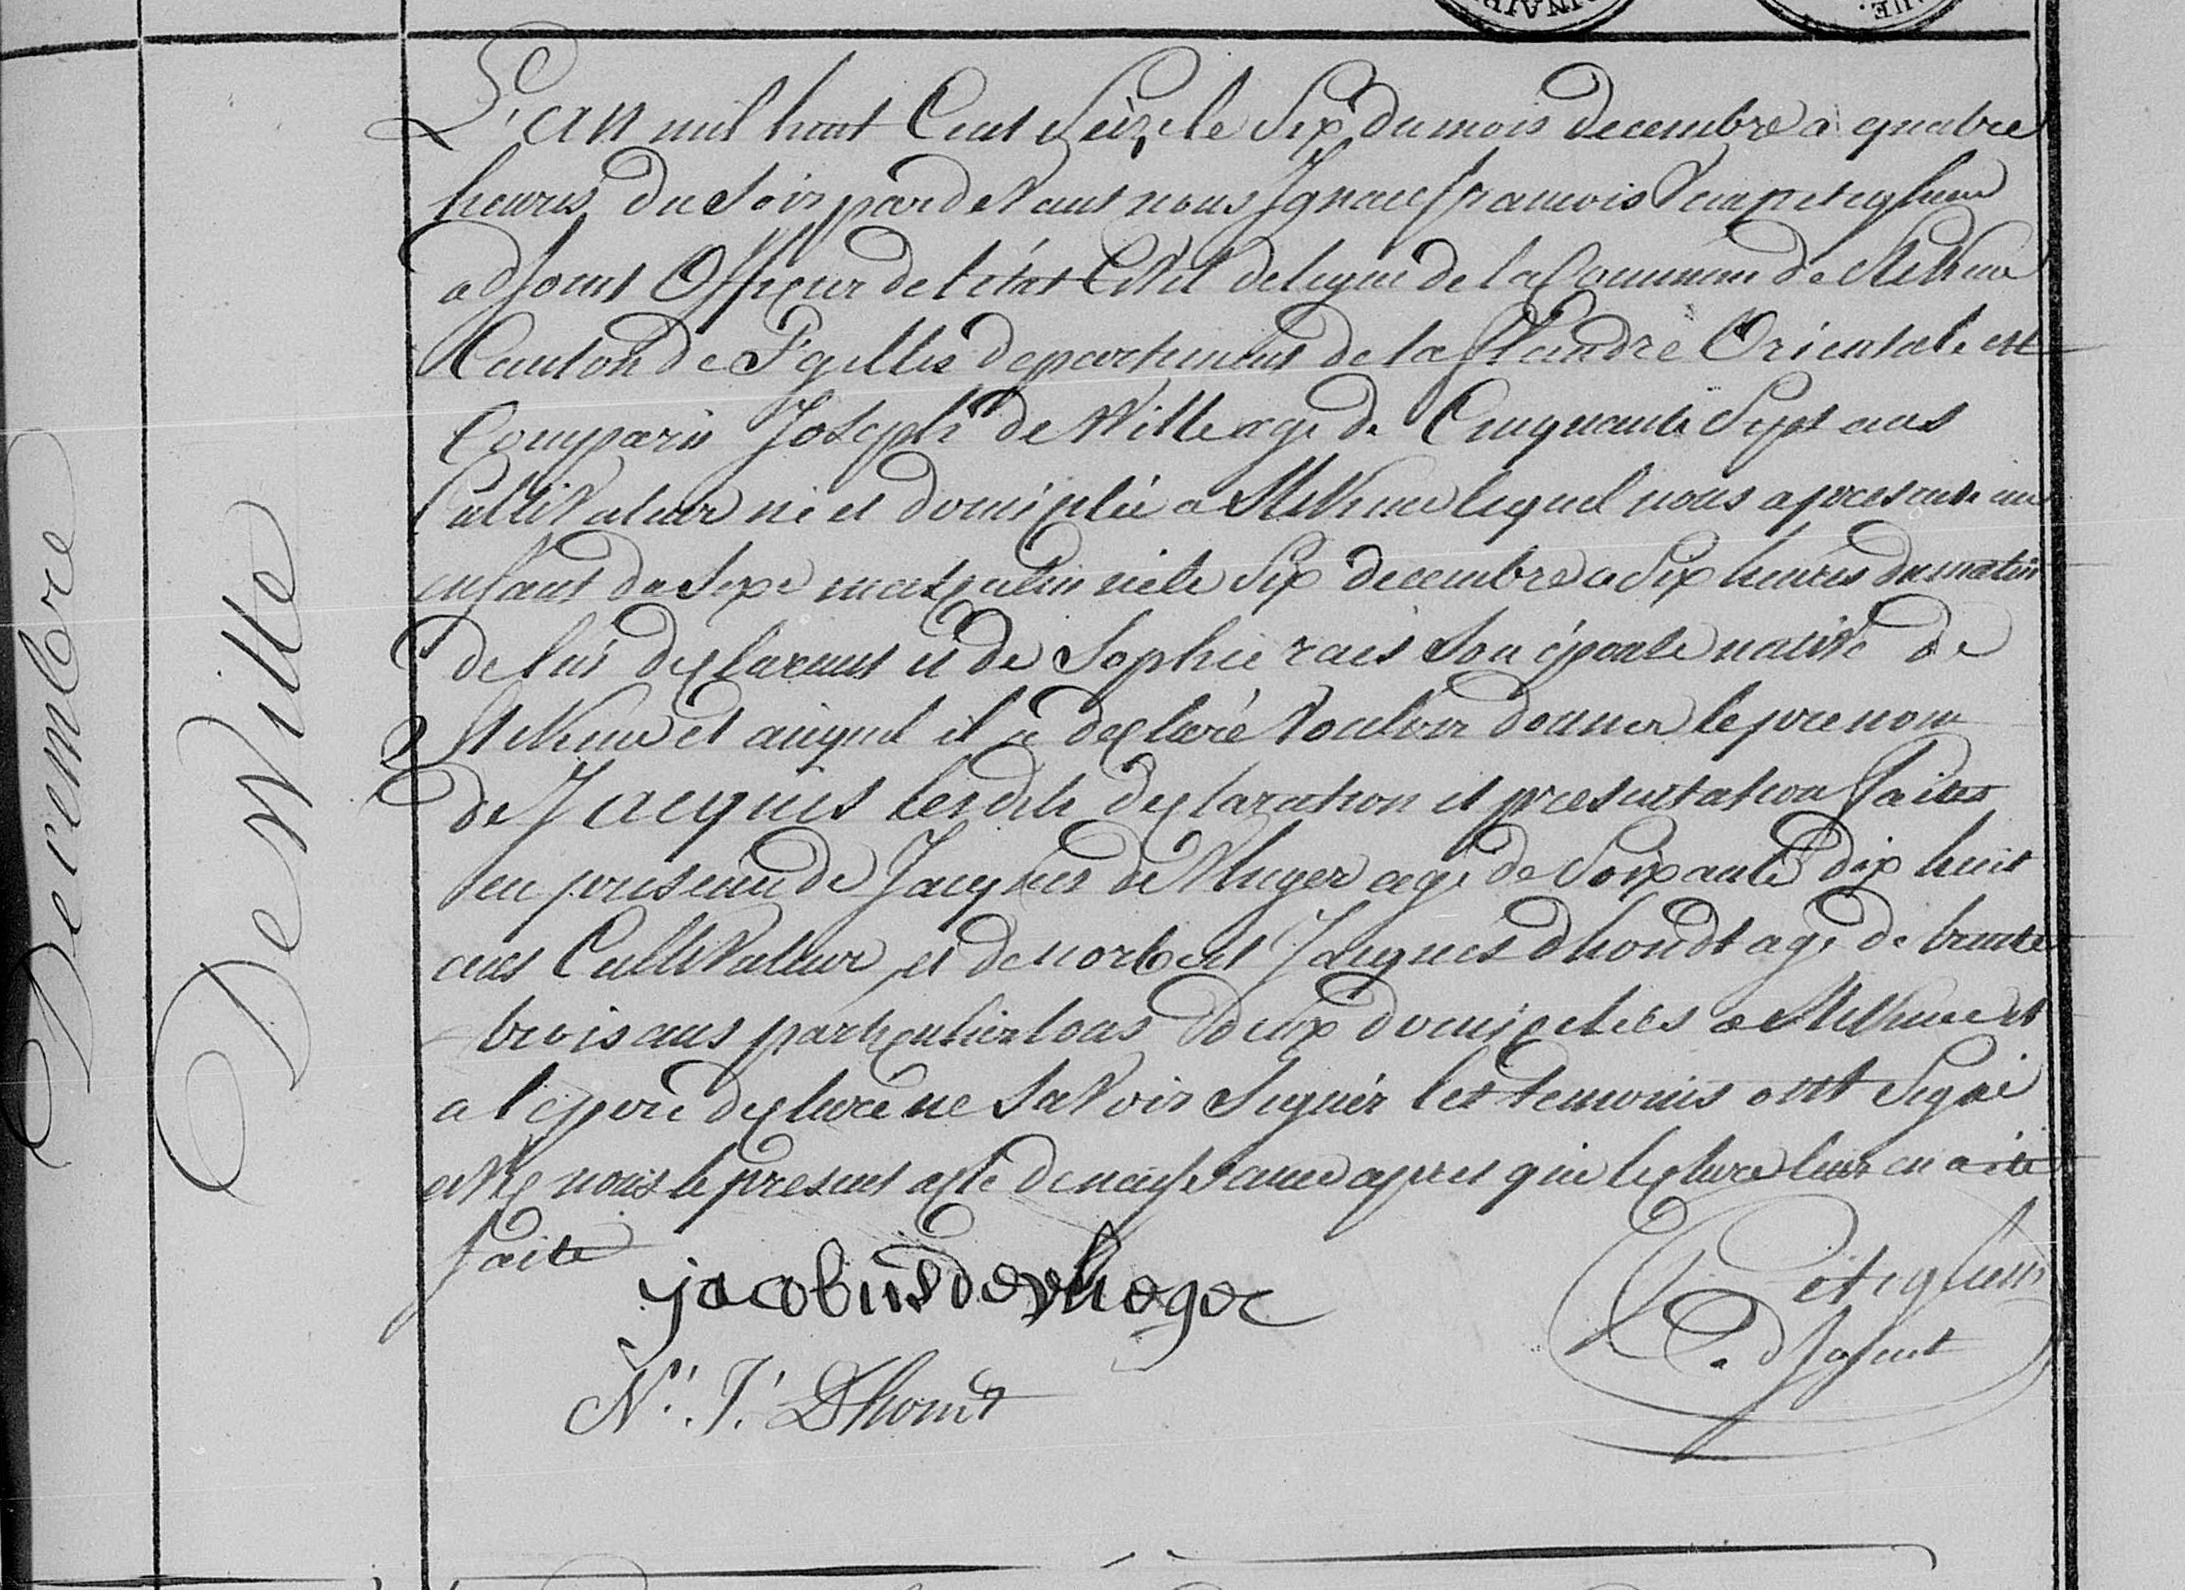 Decembre
De Witte
L'an mil huit Cent Seize le Six du mois decembre a quatre
heures du Soir pardevant nous Ignace francois Van peteghem
adjoint Officier de l'état Civil delegue de la Commune de Stekene
Canton de St gilles departement de la flandre Orientale est
Comparu Joseph de Witte age de Cinquante Sept ans
Cultivateur né et domicilié a Stekene lequel nous a presenté un
enfant de Sexe masculin né le Six decembre a Six heures du matin
de lui declarant et de Sophie raes Son épouse native de
Stekene et auquel il a declaré Vouloir donner le prenom
de Jacques les dits declaration et presentation faites
en presence de Jacques de Vlieger age de Soixante dix huit
ans Cultivateur et de norbert Jacques dhondt age de trente
trois ans particulier tous deux domiciliés a Stekene et
a le pere declaré ne Savoir Signer les temoins ont Signé
avec nous le present acte de naissance apres que lecture leur en a été
faite
jacobus de vlieger
N. J. Dhondt
Peteghem
adjoint